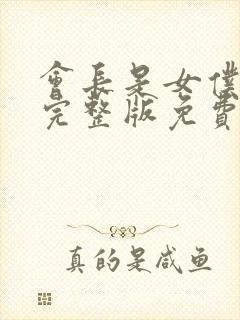 會長是女僕
完整版免費
真的是咸鱼